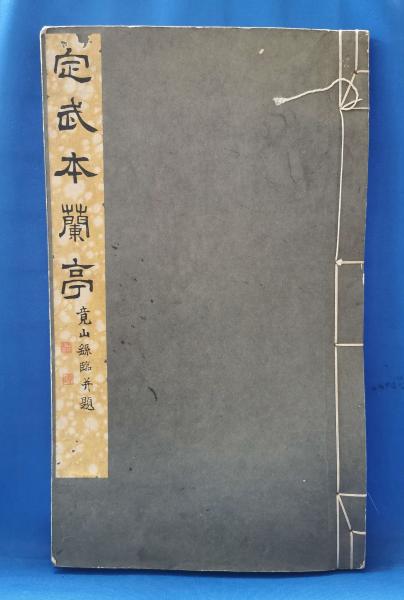 定武本蘭亭
竟山緜臨并題